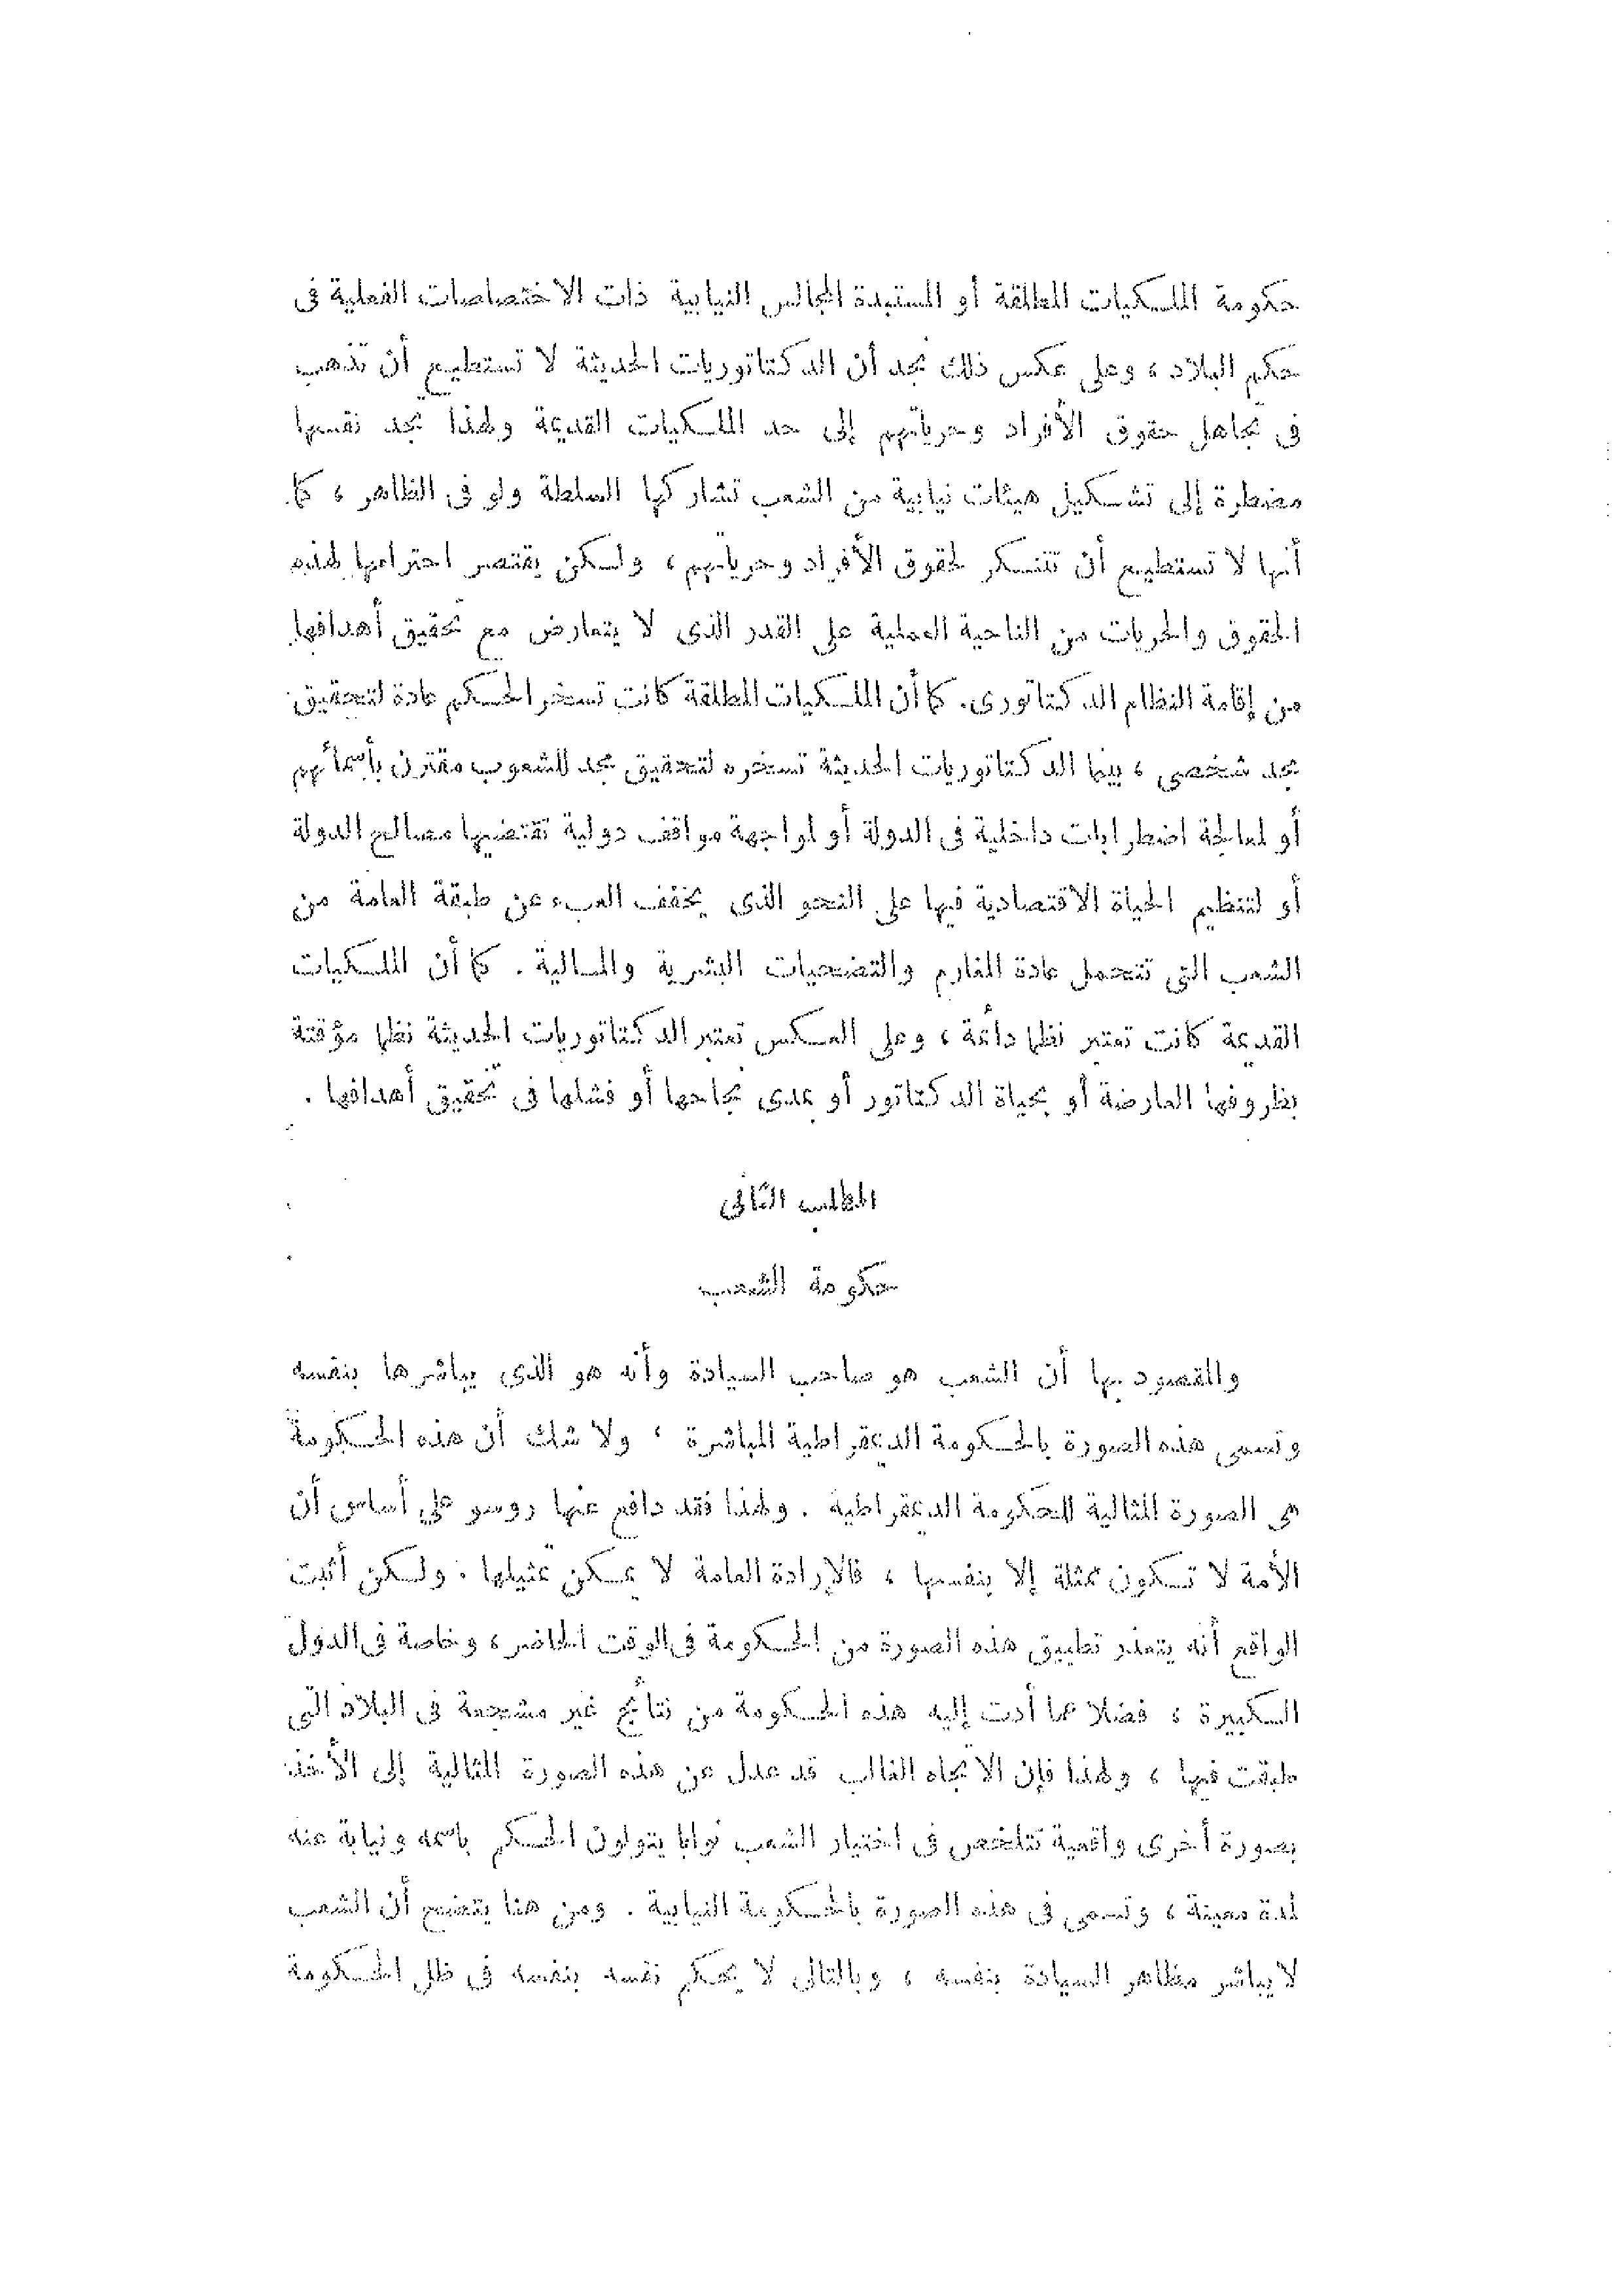 حكومة الملكيات المطلقة أو المستبدة المجالس النيابية ذات الاختصاصات الفعلية فى
حكم البلاد ، وعلى عكس ذلك نجد أن الدكتاتوريات الحديثة لا تستطيع أن تذهب
فى تجاهل حقوق الأفراد وحرياتهم إلى حد الملكيات القديمة ولهذا نجد نفسها
مضطرة إلى تشكيل هيئات نيابية من الشعب تشاركها السلطة ولو فى الظاهر ، كما
أنها لا تستطيع أن تتنكر لحقوق الأفراد وحرياتهم ، ولكن يقتصر احترامها لهذه
الحقوق والحريات من الناحية العملية على القدر الذى لا يتعارض مع تحقيق أهدافها
من إقامة النظام الدكتاتورى. كما أن الملكيات المطلقة كانت تسخر الحكم عادة لتحقيق
مجد شخصى ، بينما الدكتاتوريات الحديثة تسخره لتحقيق مجد للشعوب مقترن بأسمائهم
أو لمعالجة اضطرابات داخلية فى الدولة أو لمواجهة مواقف دولية تقتضيها مصالح الدولة
أو لتنظيم الحياة الاقتصادية فيها على النحو الذى يخفف العبء عن طبقة العامة من
الشعب التى تتحمل عادة المغارم والتضحيات البشرية والمالية . كما أن الملكيات
القديمة كانت تعتبر نظما دائمة ، وعلى العكس تعتبر الدكتاتوريات الحديثة نظما مؤقتة
بظروفها العارضة أو بحياة الدكتاتور أو بمدى نجاحها أو فشلها فى تحقيق أهدافها .
المطلب الثانى
حكومة الشعب
والمقصود بها أن الشعب هو صاحب السيادة وأنه هو الذى يباشرها بنفسه
وتسمى هذه الصورة بالحكومة الديمقراطية المباشرة ، ولا شك أن هذه الحكومة
هى الصورة المثالية للحكومة الديمقراطية . ولهذا فقد دافع عنها روسو على أساس أن
الأمة لا تكون ممثلة إلا بنفسها ، فالإرادة العامة لا يمكن تمثيلها . ولكن أثبت
الواقع أنه يتعذر تطبيق هذه الصورة من الحكومة فى الوقت الحاضر ، وخاصة فى الدول
الكبيرة ، فضلا عما أدت إليه هذه الحكومة من نتائج غير مشجعة فى البلاد التى
طبقت فيها ، ولهذا فإن الاتجاه الغالب قد عدل عن هذه الصورة المثالية إلى الأخذ
بصورة أخرى واقعية تتلخص فى اختيار الشعب نوابا يتولون الحكم باسمه ونيابة عنه
لمدة معينة ، وتسمى فى هذه الصورة بالحكومة النيابية . ومن هنا يتضح أن الشعب
لا يباشر مظاهر السيادة بنفسه ، وبالتالى لا يحكم نفسه بنفسه فى ظل الحكومة